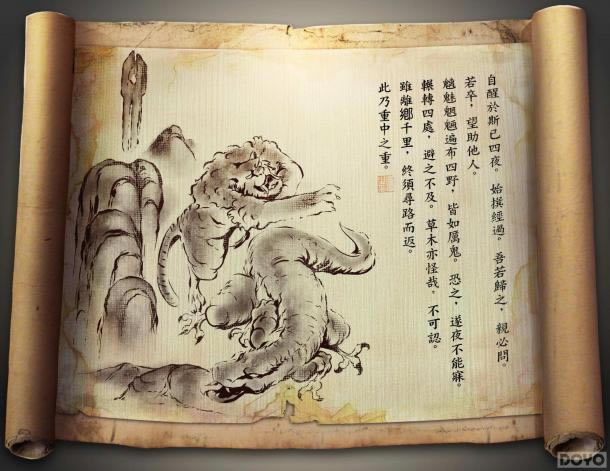 自醒於斯已四夜。始撰經過。吾若歸之，親必問。
若卒，望助他人。
魑魅魍魎遍布四野，皆如厲鬼。恐之，遂夜不能寐。
輾轉四處，避之不及。草木亦怪哉，不可認。
雖離鄉千里，終須尋路而返。
此乃重中之重。
DOYO